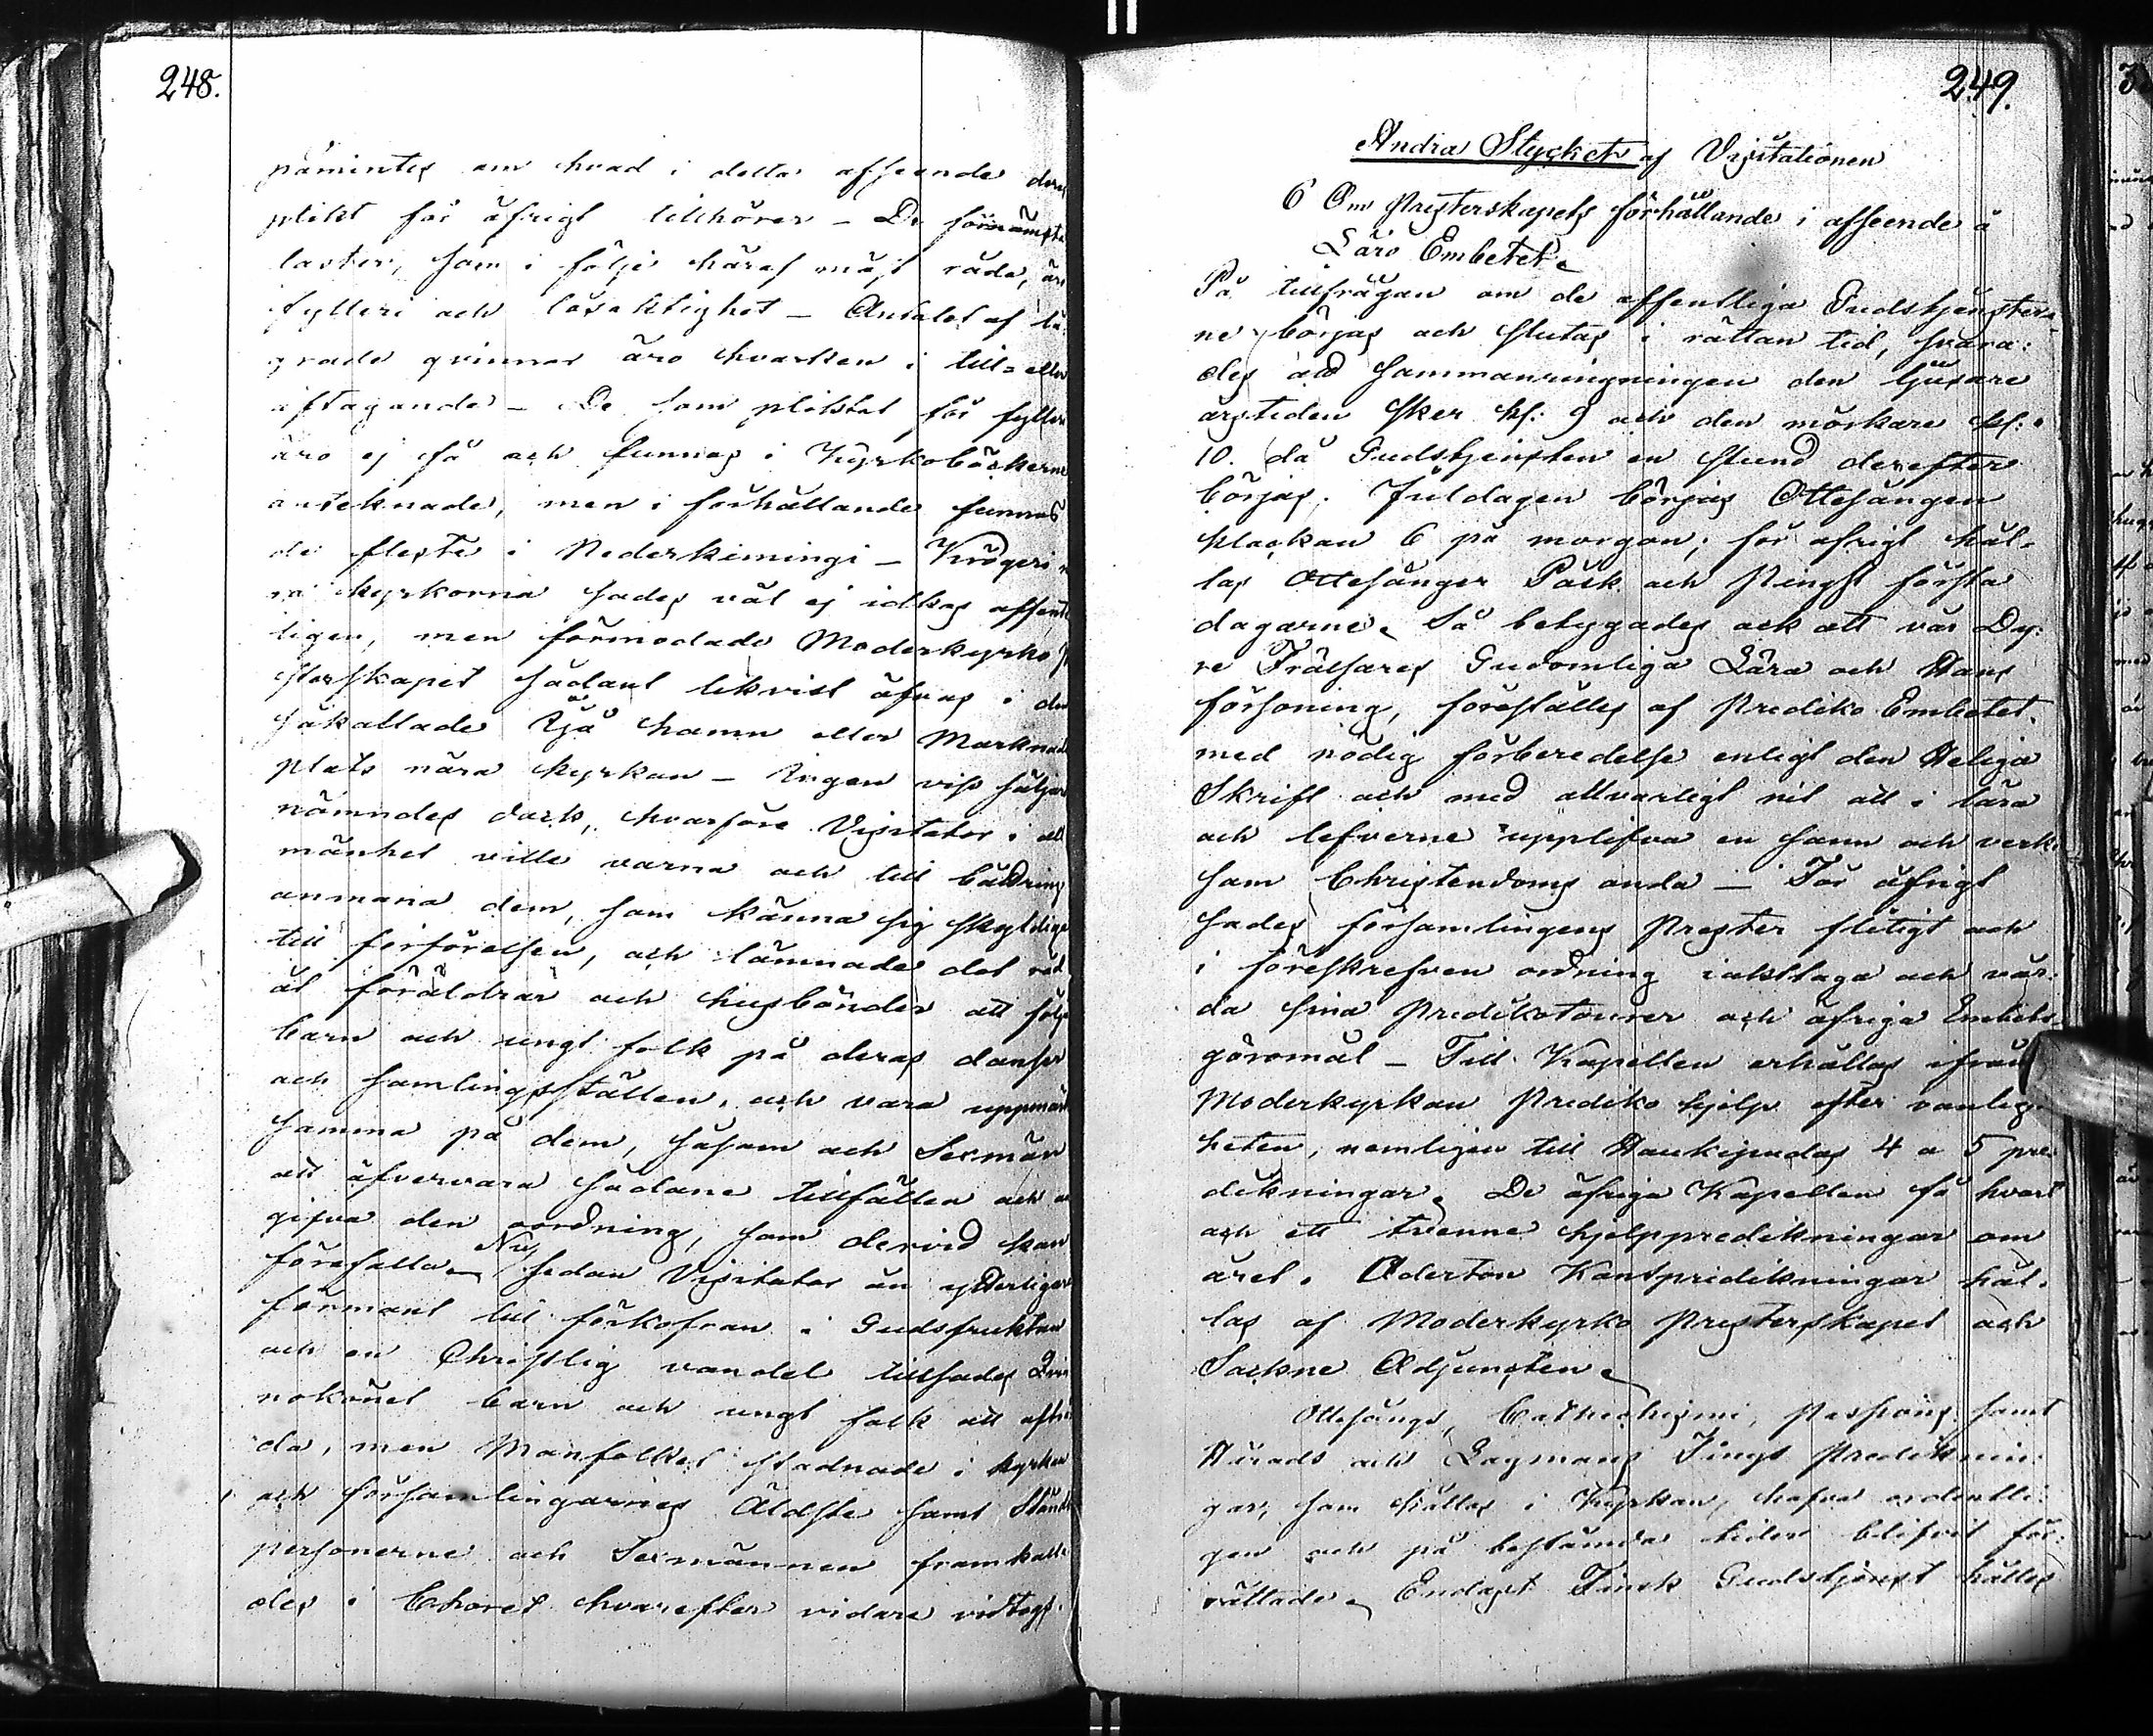 248.
påmintes om hvad i detta afseende deras
plikt för öfrigt tillhörer – De förnämsta
laster, som i följe häraf måst råda, äro
fylleri och lösaktighet – Antalet af lä-
grade qvinnor äro hvarken i till- eller
aftagande – De som pliktat för fylleri
äro ej få och funnos i Kyrkoböckerne
anteknade, men i förhållande funnos
de fleste i Nederkimingi – Krögeri
vid kyrkorna sades väl ej idkas offent-
ligen, men förmodade Moderkyrko
sterskapet sådant likvist öfvas i den
såkallade Ijå hamn eller Marknads
plats nära kyrkan – Ingen viss säljare
nämndes dock, hvarföre Visitator i all
mänhet ville varna och till bättring
anmana dem, som känna sig skyldige
till förförelsen, och lämnade det råd
åt föräldrar och husbönder att följa
barn och ungt folk på deras danser
och samlingsställen, och vara uppmärk
samma på dem, såsom och Sexmän
att öfvervara sådane tillfällen och
gifva den oordning, som dervid kan
förefalla. Nu sedan Visitator än ytterligare
förmant till förkofran i Gudsfruktan
och en Christlig vandel tillsades Qvin
nokönet barn och ungt folk att afträ
da, men Manfolket stadnade i kyrkan
och församlingarnes Äldste samt Stånds
personerne och Sexmännen framkalla
des i Choret hvarefter vidare vidtogs.
249.
Andra Stycket af Visitationen
6 Om Presterskapets förhållande i afseende å
Läro Embetet.
På tillfrågan om de offentliga Gudstjenster-
ne börjas och slutas i rättan tid, svara-
des att sammanringningen den ljusare
årstiden sker kl: 9 och den mörkare kl:
10. då Gudstjensten en stund derefter
börjas. Juldagen börjas Ottesången
klockan 6 på morgon; för öfrigt hål-
las Ottesånger Påsk och Pingst första
dagarne. Så betygades ock att vår Dy-
re Frälsares Gudomliga Lära och Hans
försoning, föreställes af Prediko Embetet
med nödig förberedelse enligt den Heliga
Skrift och med allvarligt nit att i lära
och lefverne upplifva en sann och verk-
sam Christendoms anda – För öfrigt
sades församlingens Prester flitigt och
i föreskrefven ordning iakttaga och vår-
da sina Predikotourer och öfriga Embets
göromål – Till Kapellen erhålles ifrån
Moderkyrkan Prediko hjelp efter vanlig-
heten, nemligen till Haukipudas 4 a 5 pre-
dikningar. De öfriga Kapellen få hvart
och ett tvenne hjelppredikningar om
året. Aderton Kantpredikningar hål-
las af Moderkyrko Presterskapet och
Sockne Adjuncten.
Ottesångs, Cathechismi, Passions samt
Härads och Lagmans Tings Prediknin-
gar, som hållas i Kyrkan, hafva ordentli-
gen och på bestämda tider blifvit för-
rättade. Endast Finsk Gudstjenst hålles